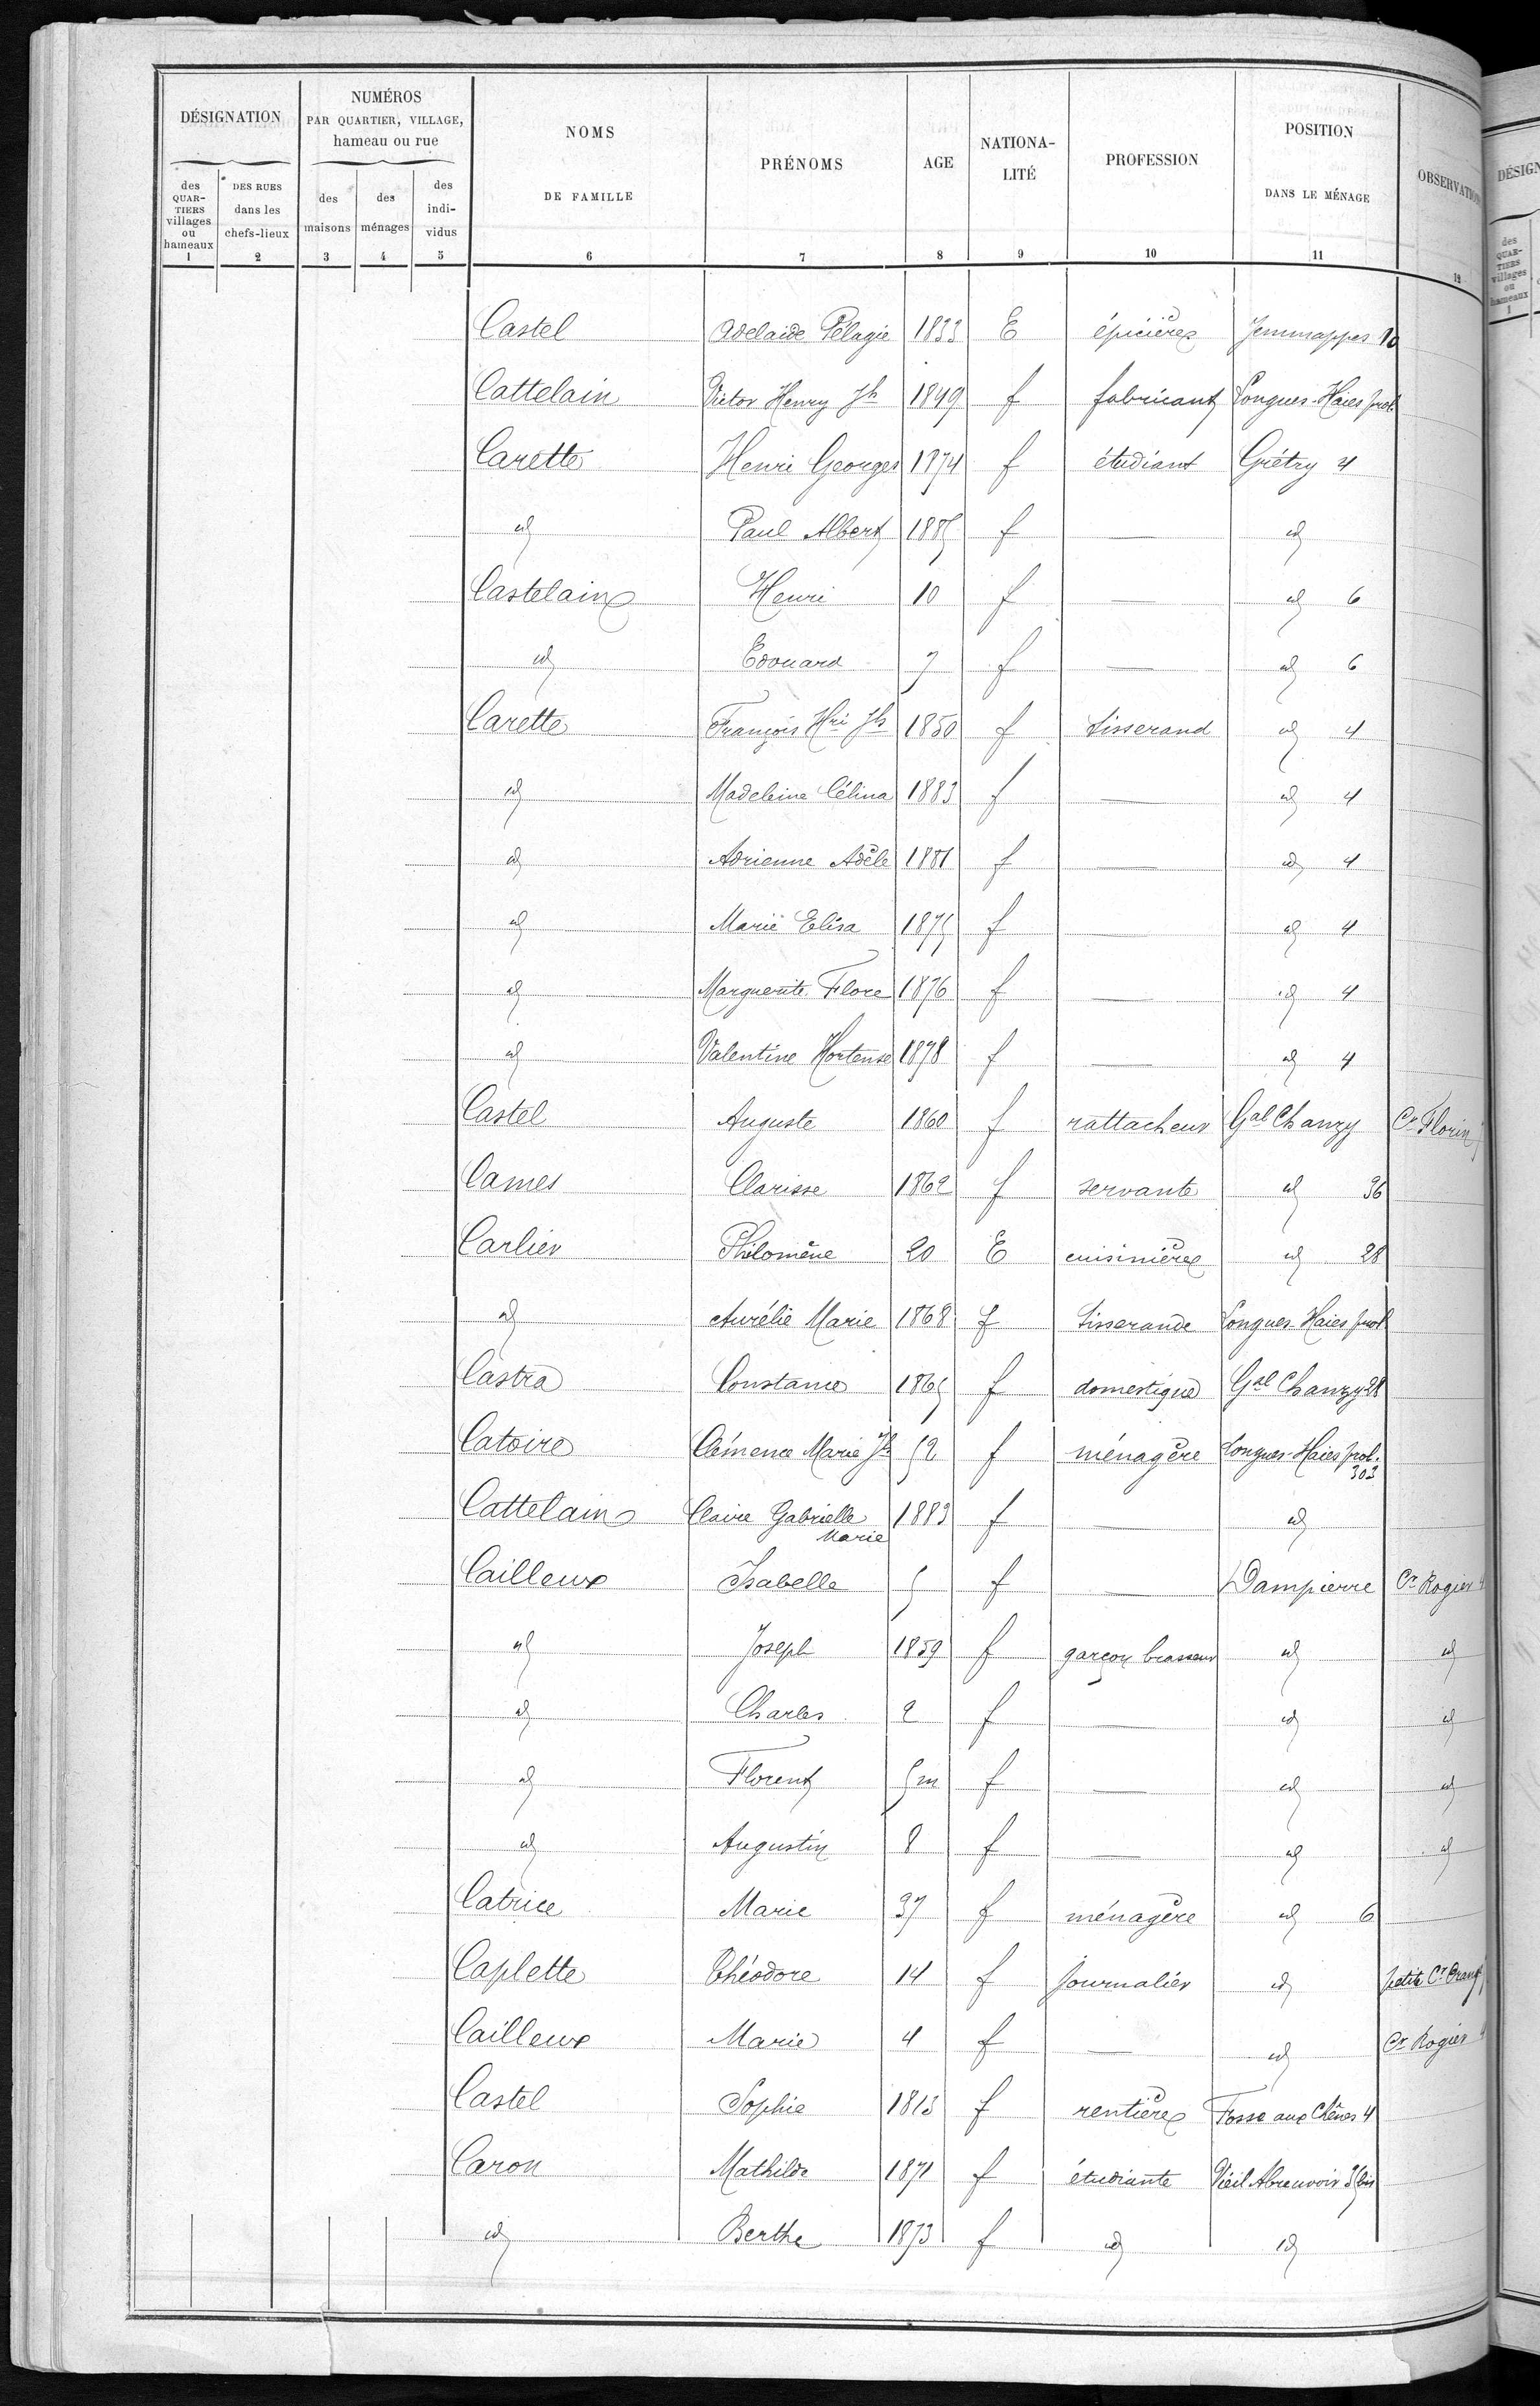 DÉSIGNATION
NUMÉROS
PAR QUARTIER, VILLAGE,
hameau ou rue
NOMS
DE FAMILLE
PRÉNOMS
AGE
NATIONA-
LITÉ
PROFESSION
POSITION
DANS LE MÉNAGE
OBSERVATIONS
des
QUAR-
TIERS
villages
ou
hameaux
DES RUES
dans les
chefs-lieux
des
maisons
des
ménages
des
indi-
vidus
1 2 3 4 5 6 7 8 9 10 11 12
Castel Adelaide Pélagie 1833 E épicière Jemmappes 10
Cattelain Victor Henry Jh 1849 f fabricant Longues-Haies prol.
Carette Henri Georges 1874 f étudiant Grétry 4
id Paul Albert 1885 f — id
Castelain Henri 10 f — id 6
id Edouard 7 f — id 6
Carette François Hri Jh 1850 f tisserand id 4
id Madeleine Célina 1883 f — id 4
id Adrienne Adèle 1881 f — id 4
id Marie Elisa 1875 f — id 4
id Marguerite Flore 1876 f — id 4
id Valentine Hortense 1878 f — id 4
Castel Auguste 1860 f rattacheur Gal Chanzy Cr Florin
Cames Clarisse 1862 f servante id 36
Carlier Philomène 20 E cuisinière id 28
id Aurélie Marie 1868 f tisserande Longues-Haies prol
Castra Constance 1865 f domestique Gal Chanzy 28
Catoire Clémence Marie Jh 52 f ménagère Longues-Haies prol.
303
Cattelain Claire Gabrielle 1883 f — id
Marie
Cailleux Isabelle 5 f — Dampierre Cr Rogier 4
id Joseph 1859 f garçon brasseur id id
id Charles 2 f — id id
id Florent 5m f — id id
id Augustin 8 f — id id
Catrice Marie 37 f ménagère id 6
Caplette Théodore 14 f journalier id petite Cr
Cailleux Marie 4 f — id Cr Rogier 4
Castel Sophie 1813 f rentière Fosse aux Chênes 4
Caron Mathilde 1871 f étudiante Vieil Abreuvoir 35 bis
id Berthe 1873 f id id
DÉSIGN
des
QUAR-
TIERS
villages
ou
hameaux
1